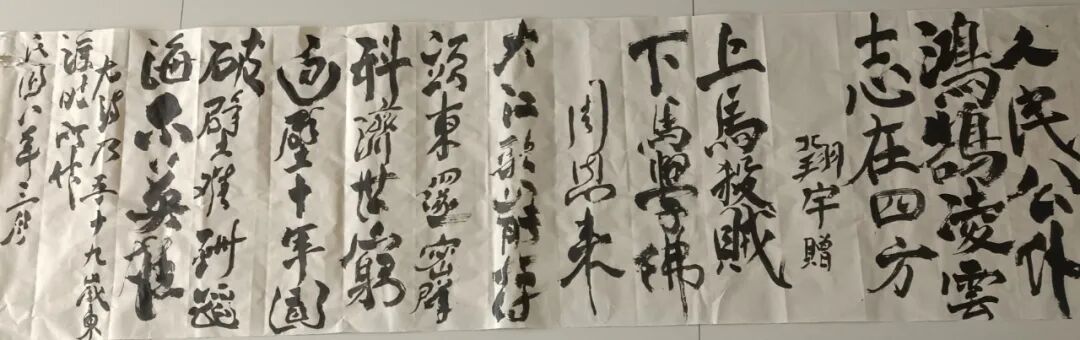 人民公仆
鴻鵠凌雲
志在四方
翔宇贈
上馬殺賊
下馬學佛
周恩来
大江歌罷掉
頭東邃密群
科濟世窮
面壁十年圖
破壁難酬蹈
海亦英雄
右詩乃吾十九歲東
渡時所作
民國八年三月